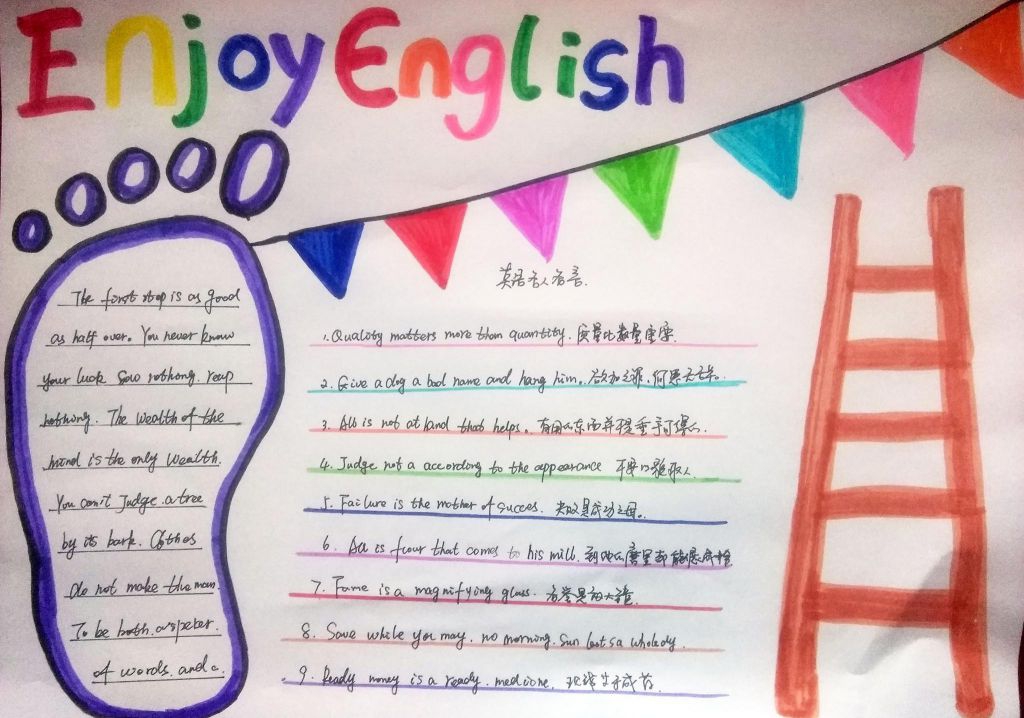 Enjoy English
The first step is as good
as half over. You never know
your luck Sow nothing. reap
nothing. The Wealth of the
mind is the only Wealth.
You can't Judge a tree
by its bark. Clothes
do not make the man
To be both a speter.
of words. and a.
英语名人名言.
1. Quality matters more than quantity. 质量比数量重要.
2. Give a dog a bad name and hang him. 欲加之罪,何患无辞.
3. All is not at hand that helps. 有用的东西并不是垂手可得.
4. Judge not a according to the appearance 不要以貌取人
5. Failure is the mother of succes. 失败是成功之母.
6. All is four that comes to his mill. 到他的磨里都能
7. Fame is a magnifying glass. 名誉是放大镜.
8. Save while you may. no morning. Sun lasts a whole dy.
9. Ready money is a ready. medicine.